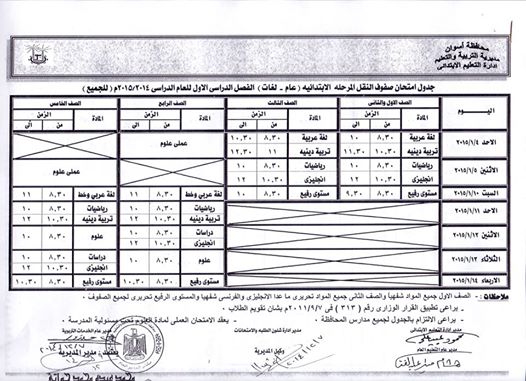 محافظة أسوان
مديرية التربية والتعليم
إدارة التعليم الابتدائى
جدول امتحان صفوف النقل المرحله الابتدائيه ( عام - لغات ) الفصل الدراسى الاول للعام الدراسى ٢٠١٥/٢٠١٤م ( للجميع )
اليوم الصف الاول والثانى الصف الثالث الصف الرابع الصف الخامس
المادة الزمن المادة الزمن المادة الزمن المادة الزمن
من الى من الى من الى من الى
الاحد ٢٠١٥/١/٤ لغة عربية ٨,٣٠ ١٠ لغة عربية ٨,٣٠ ١٠,٣٠ عملى علوم
تربية دينيه ١٠,٣٠ ١١,٣٠ تربية دينيه ١١ ١٢
الاثنين ٢٠١٥/١/٥ رياضيات ٨,٣٠ ١٠ رياضيات ٨,٣٠ ١٠ عملى علوم
انجليزى ١٠,٣٠ ١٢ انجليزى ١٠,٣٠ ١٢
السبت ٢٠١٥/١/١٠ مستوى رفيع ٨,٣٠ ٩,٣٠ مستوى رفيع ٨,٣٠ ١٠ لغة عربي وخط ٨,٣٠ ١١ لغة عربي وخط ٨,٣٠ ١١
الاحد ٢٠١٥/١/١١ رياضيات ٨,٣٠ ١٠ رياضيات ٨,٣٠ ١٠
تربية دينيه ١٠,٣٠ ١٢ تربية دينيه ١٠,٣٠ ١٢
الاثنين ٢٠١٥/١/١٢ علوم ٨,٣٠ ١٠ دراسات ٨,٣٠ ١٠
انجليزى ١٠,٣٠ ١٢
الثلاثاء ٢٠١٥/١/١٣ دراسات ٨,٣٠ ١٠ علوم ٨,٣٠ ١٠
انجليزى ١٠,٣٠ ١٢
الاربعاء ٢٠١٥/١/١٤ مستوى رفيع ٨,٣٠ ١٠,٣٠ مستوى رفيع ٨,٣٠ ١٠,٣٠
ملاحظات : - الصف الاول جميع المواد شفهياً والصف الثانى جميع المواد تحريرى ما عدا الانجليزى والفرنسى شفهياً والمستوى الرفيع تحريرى لجميع الصفوف
- يراعى تطبيق القرار الوزارى رقم ( ٣١٣ ) فى ٢٠١١/٩/٧م بشأن تقويم الطلاب
- يراعى الالتزام بالجدول لجميع مدارس المحافظة - يعقد الامتحان العملى لمادة العلوم تحت مسئولية المدرسة
مدير ادارة التعليم الابتدائى
مدير ادارة شئون الطلبه والامتحانات
مدير عام الخدمات التربوية
مدير عام التعليم العام
وكيل المديرية
مدير المديرية